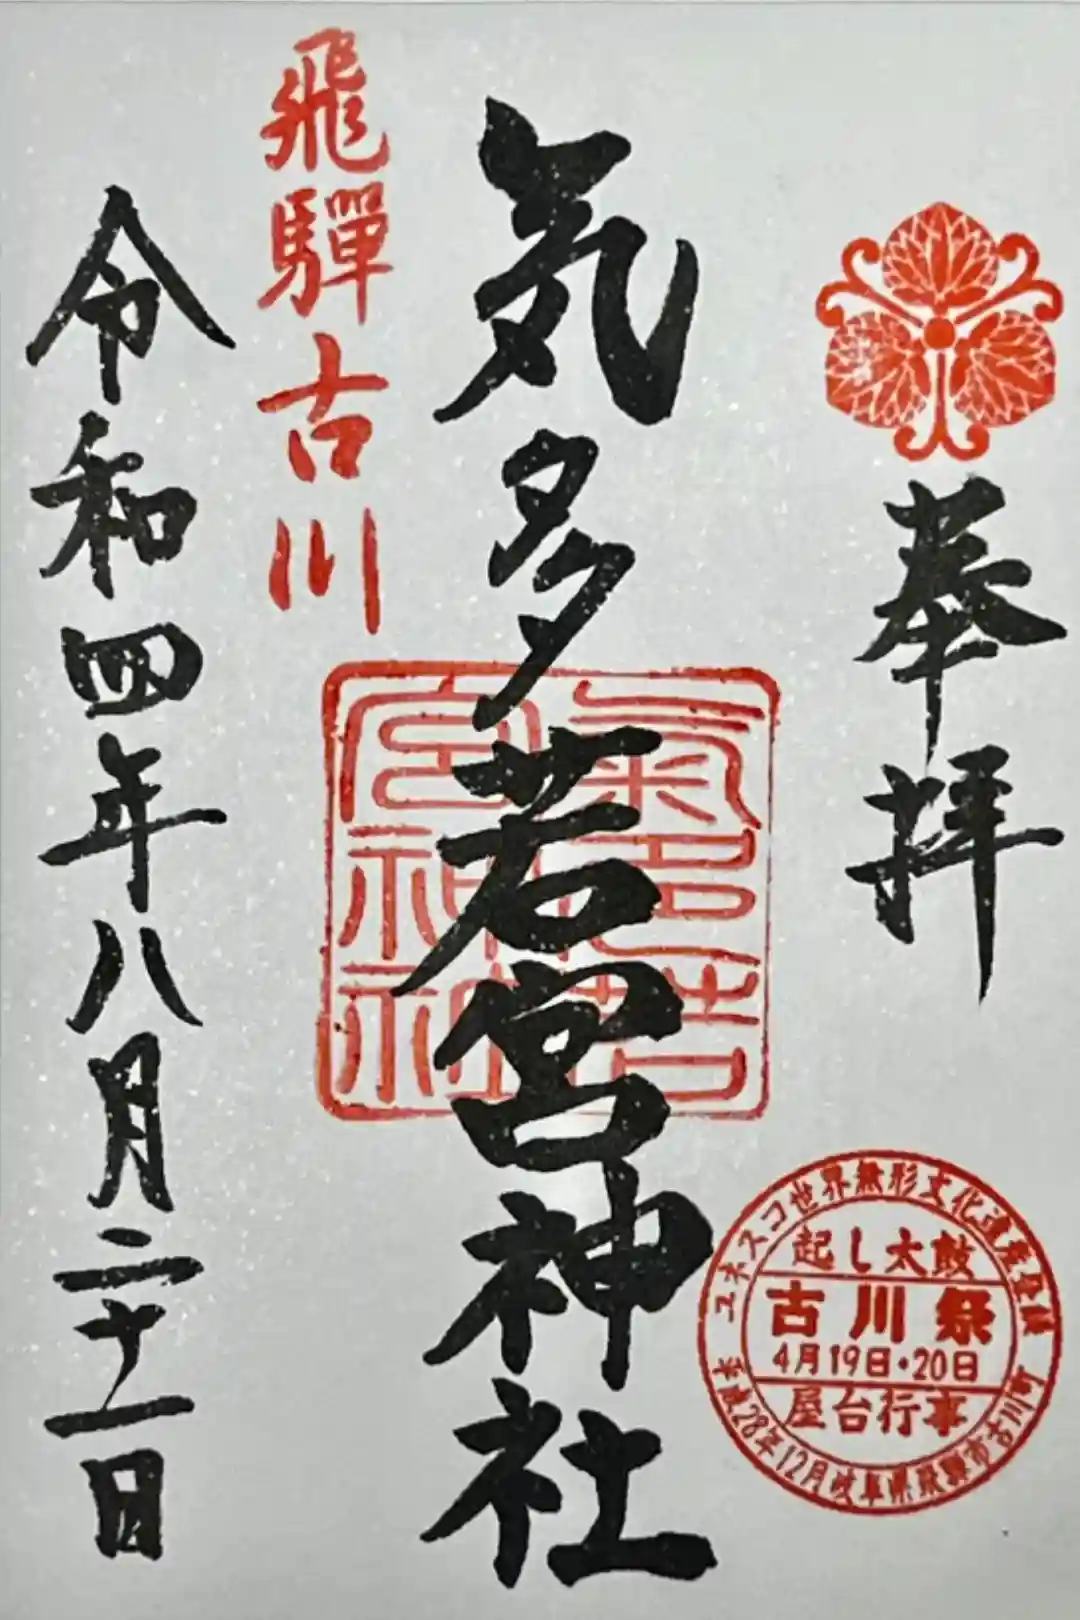 奉拝
気多若宮神社
飛驒古川
令和四年八月二十一日
氣多若
宮神社
ユネスコ世界無形文化遺産登録
起し太鼓
古川祭
4月19日・20日
屋台行事
平成28年12月岐阜県飛騨市古川町